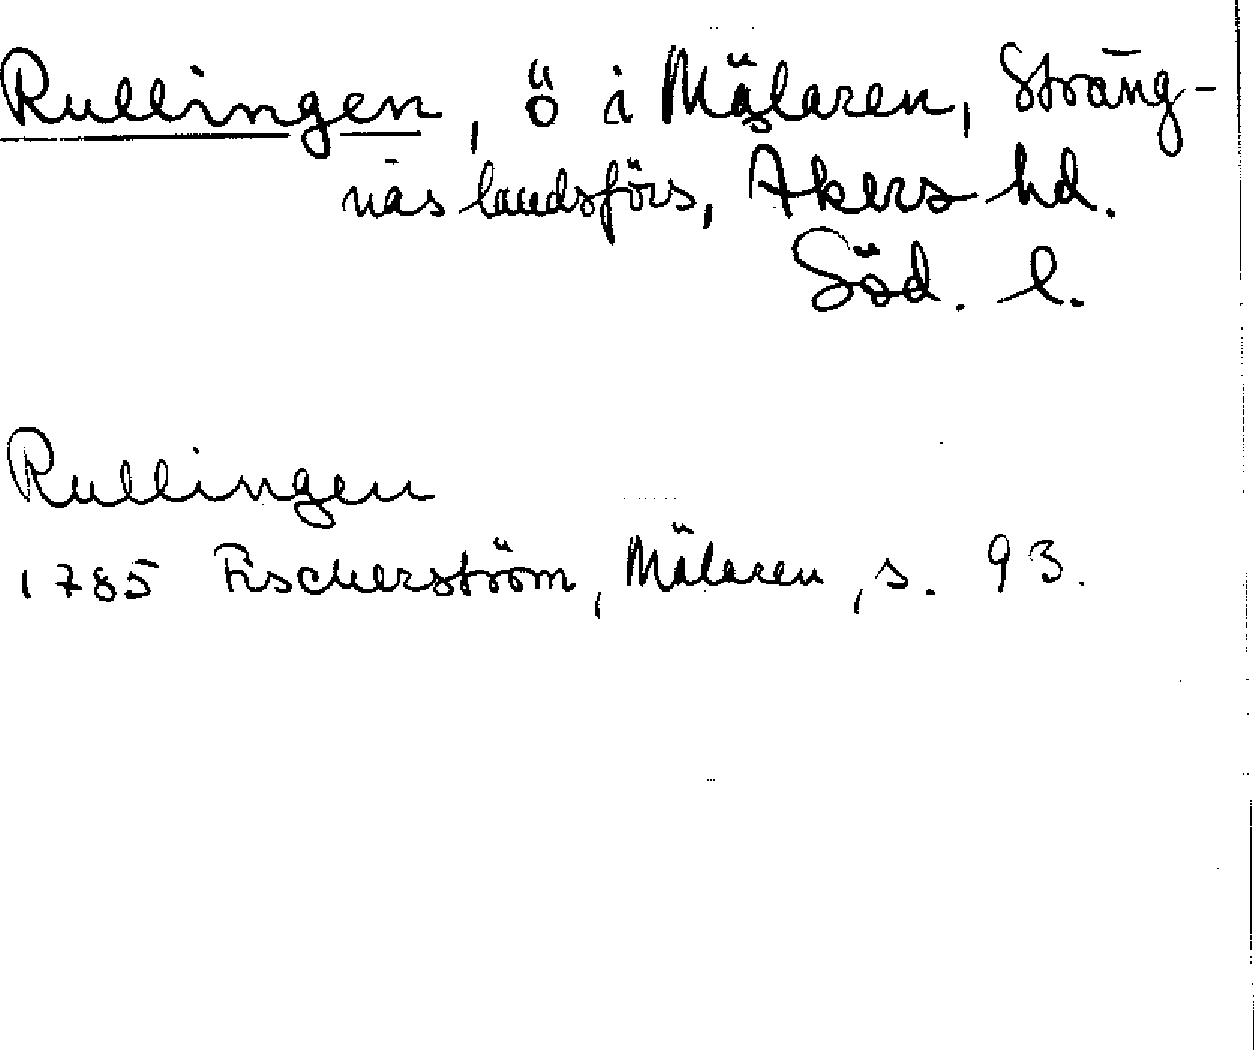 Rullingen, ö i Mälaren, Sträng-
näs landsförs, Åkers hd.
Söd. l.
Rullingen
1785 Fischerström, Mälaren, s. 93.